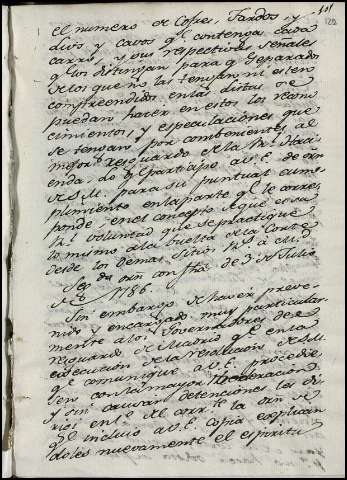 101
120
el numero de Cofres, Fardos, y
dros y cavos qe. contenga cada
carro, y sus respectivas señales
qe. los distinguan para qe. separados
de los que no las tengan, ni esten
comprendidos en las listas, se
puedan hacer en estos los recono
cimientos, y especulaciones que
se tengan por combenientes al
mejor resguardo de la Rl. Hazi
enda: de qe. participo a V.E. de orn
de S.M. para su puntual cum
plimiento en la parte qe. le corres
ponde, en el concepto de que es su
Rl. voluntad que se practique
lo mismo a la buelta de la Corte
desde los demas Sitios Rs. a Md.
orn con fha. de 3 de Julio
de 1786.
Sin embargo de haver preve
nido y encargado muy particular
mente a los Governadores de
resguardo de Madrid qe. en la
execucion de la resolucion de S.M.
qe. comuniqué a V.E. procedie
sen con la mayor moderacion
y sin causar detenciones, les di
rijo en el de la orn de
qe. incluio a V.E. copia explican
doles nuevamente el espiritu